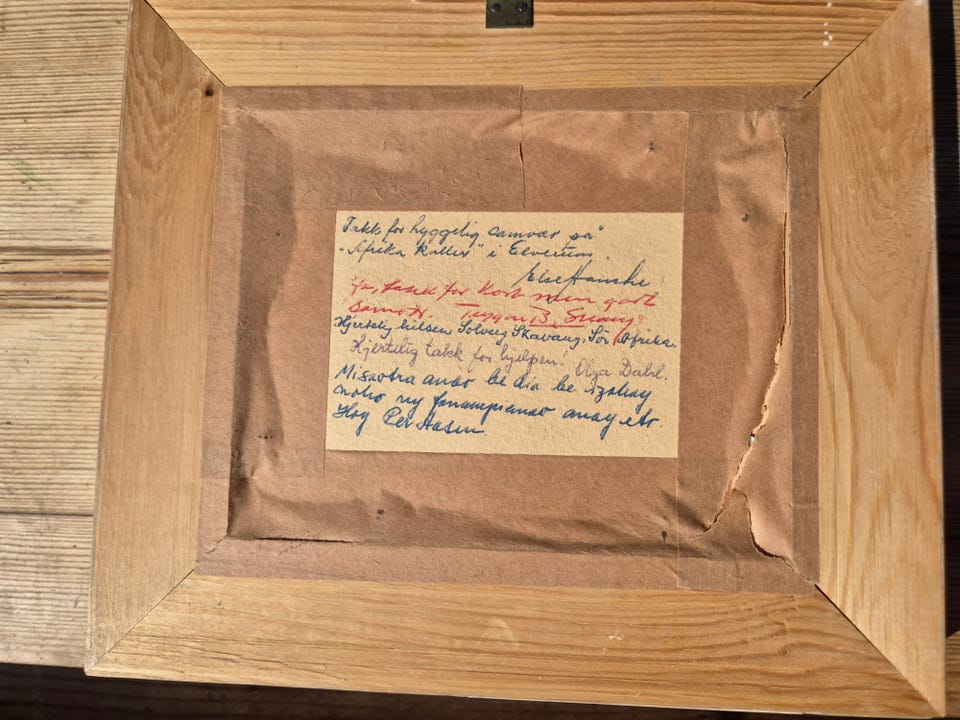 Takk for hyggelig samvær på
"Afrika kaller" i Elverum.
Else Hamke
Ja, takk for kort men godt
samvær. Trygve B.
Hjertelig hilsen Solveig Skavang, Sør Afrika.
Hjertelig takk for hjelpen! Olga Dahl.
Misaotra anao be dia be izahay
noho ny fanampianao anay etc.
Hlsg Per Aasen.